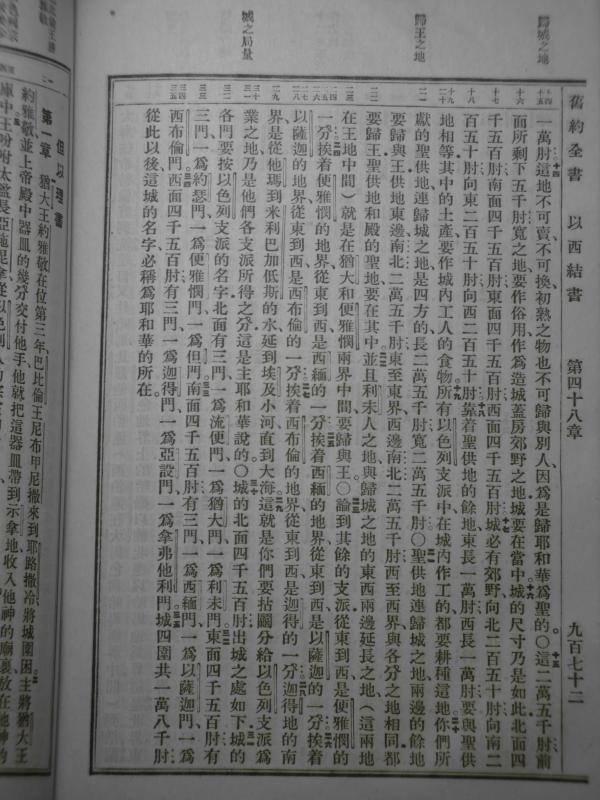 舊約全書 以西結書 第四十八章 九百七十二
歸城之地
歸王之地
城之局量
一萬肘這地不可賣不可換初熟之物也不可歸與別人因爲是歸耶和華爲聖的〇這二萬五千肘前
面所剩下五千肘寬之地要作俗用作爲造城蓋房郊野之地城要在當中城的尺寸乃是如此北面四
千五百肘南面四千五百肘東面四千五百肘西面四千五百肘城必有郊野向北二百五十肘向南二
百五十肘向東二百五十肘向西二百五十肘靠着聖供地的餘地東長一萬肘西長一萬肘要與聖供
地相等其中的土產要作城內工人的食物所有以色列支派中在城內作工的都要耕種這地你們所
獻的聖供地連歸城之地是四方的長二萬五千肘寬二萬五千肘〇聖供地連歸城之地兩邊的餘地
要歸與王供地東邊南北二萬五千肘東至東界西邊南北二萬五千肘西至西界與各分之地相同都
要歸王聖供地和殿的聖地要在其中並且利未人之地與歸城之地的東西兩邊延長之地(這兩地
在王地中間)就是在猶大和便雅憫兩界中間要歸與王〇論到其餘的支派從東到西是便雅憫的
一分挨着便雅憫的地界從東到西是西緬的一分挨着西緬的地界從東到西是以薩迦的一分挨着
以薩迦的地界從東到西是西布倫的一分挨着西布倫的地界從東到西是迦得的一分迦得地的南
界是從他瑪到米利巴加低斯的水延到埃及小河直到大海這就是你們要拈鬮分給以色列支派爲
業之地乃是他們各支派所得之分這是主耶和華說的〇城的北面四千五百肘出城之處如下城的
各門要按以色列支派的名字北面有三門一爲流便門一爲猶大門一爲利未門東面四千五百肘有
三門一爲約瑟門一爲便雅憫門一爲但門南面四千五百肘有三門一爲西緬門一爲以薩迦門一爲
西布倫門西面四千五百肘有三門一爲迦得門一爲亞設門一爲拿弗他利門城四圍共一萬八千肘
從此以後這城的名字必稱爲耶和華的所在
但以理書
第一章 猶大王約雅敬在位第三年巴比倫王尼布甲尼撒來到耶路撒冷將城圍困主將猶大王
約雅敬並上帝殿中器皿的幾分交付他手他就把這器皿帶到示拿地收入他神的廟裏放在他神的
庫中王吩咐太監長亞施毘拿從以色列人的